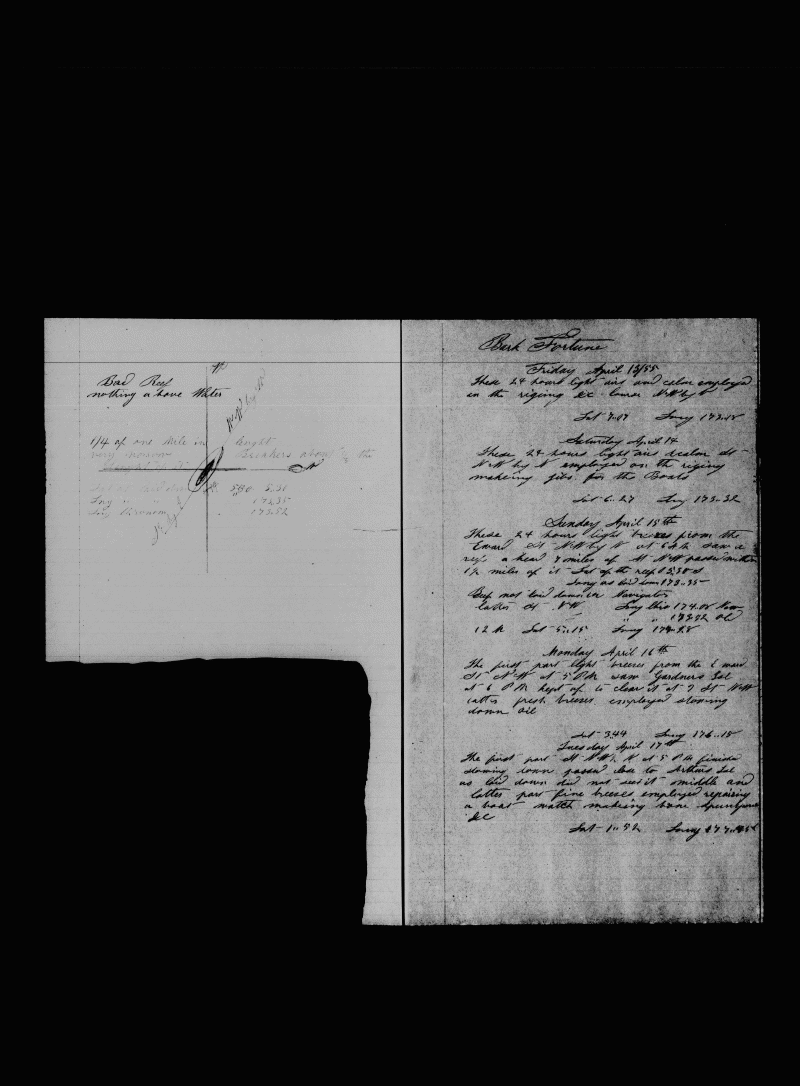 N
Bad Reef
nothing above Water
NW by N
1/4 of one Mile in hight
very narrow Breakers about the
Lat 5.30
Long 173.35
Long 173.52
Bark Fortune
Friday April 13/55
These 24 hours light airs and calm employed
in the riging &c NW by N
Lat 7.07 Long 172.15
Saturday April 14
These 24 hours light airs & calm St
NW by N employed on the riging
makeing jibs for the Boats
Lat 6.27 Long 173.32
Sunday April 15th
These 24 hours light breezes from the
Eward St NW by N at saw a
reef a head miles of St NW passed within
1½ miles of it Lat of the reef 5.30 S
Long as laid down 173.35
Reef not laid down in Navigator
latter St NW Long 174.02
173.52
12 M Lat 5.15 Long
Monday April 16th
The first part light breezes from the E ward
St NW at 5 PM saw Gardners Isl
at 6 PM kept of to clear it at 7 St NW
latter fresh breezes employed stowing
down oil
Lat 3.44 Long 176.15
Tuesday April 17th
The first part St NW½ N at 5 PM finish
stowing down passed close to Arthurs Isl
as laid down did not see it middle and
latter part fine breezes employed repairing
a boat watch makeing Spunyarn
&c
Lat 1.52 Long